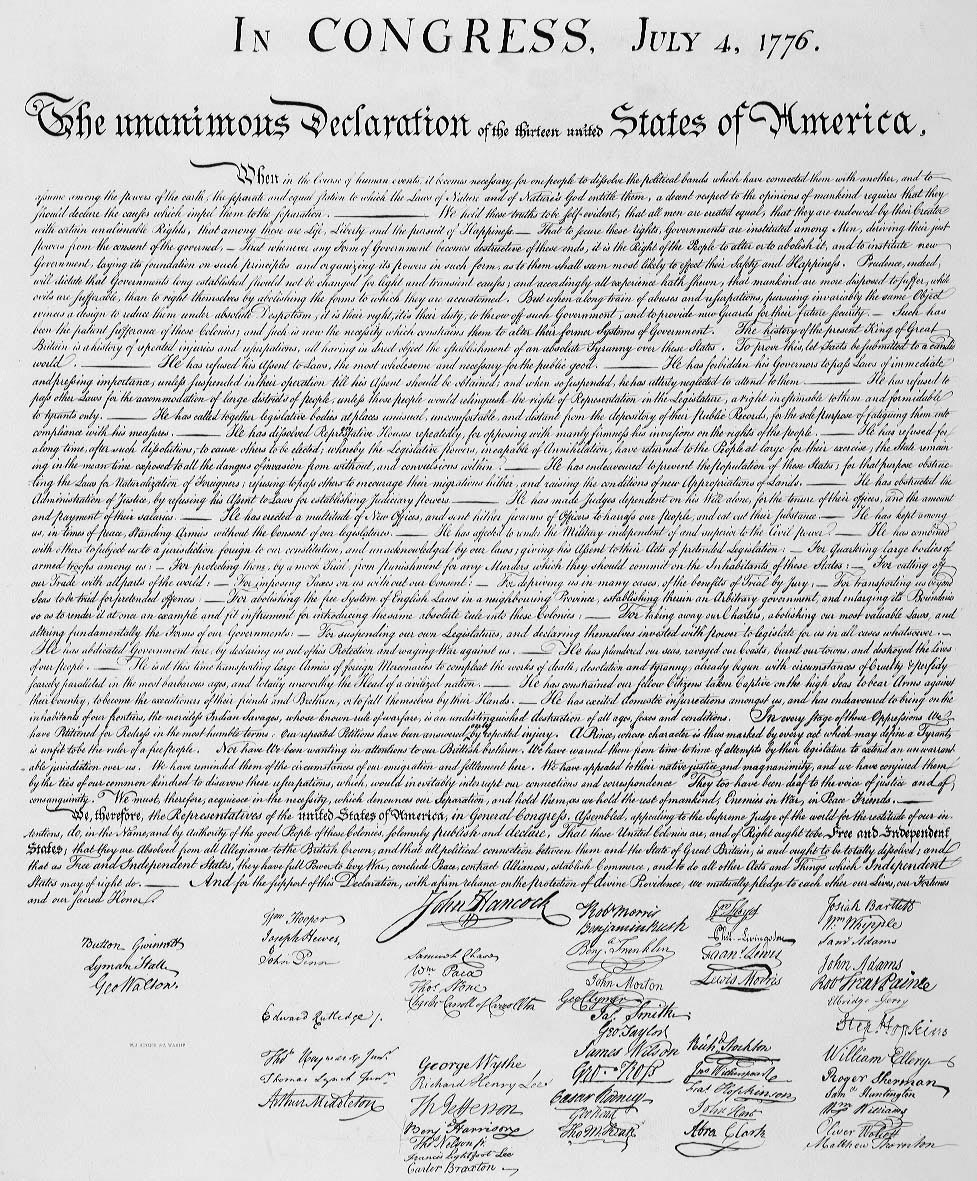 IN CONGRESS, JULY 4, 1776.
The unanimous Declaration of the thirteen united States of America,
When in the Course of human events, it becomes necessary for one people to dissolve the political bands which have connected them with another, and to
assume among the powers of the earth, the separate and equal station to which the Laws of Nature and of Nature's God entitle them, a decent respect to the opinions of mankind requires that they
should declare the causes which impel them to the separation. ——— We hold these truths to be self-evident, that all men are created equal, that they are endowed by their Creator
with certain unalienable Rights, that among these are Life, Liberty and the pursuit of Happiness. — That to secure these rights, Governments are instituted among Men, deriving their just
powers from the consent of the governed, — That whenever any Form of Government becomes destructive of these ends, it is the Right of the People to alter or to abolish it, and to institute new
Government, laying its foundation on such principles and organizing its powers in such form, as to them shall seem most likely to effect their Safety and Happiness. Prudence, indeed,
will dictate that Governments long established should not be changed for light and transient causes; and accordingly all experience hath shewn, that mankind are more disposed to suffer, while
evils are sufferable, than to right themselves by abolishing the forms to which they are accustomed. But when a long train of abuses and usurpations, pursuing invariably the same Object
evinces a design to reduce them under absolute Despotism, it is their right, it is their duty, to throw off such Government, and to provide new Guards for their future security. — Such has
been the patient sufferance of these Colonies; and such is now the necessity which constrains them to alter their former Systems of Government. The history of the present King of Great
Britain is a history of repeated injuries and usurpations, all having in direct object the establishment of an absolute Tyranny over these States. To prove this, let Facts be submitted to a candid
world. ——— He has refused his Assent to Laws, the most wholesome and necessary for the public good. ——— He has forbidden his Governors to pass Laws of immediate
and pressing importance, unless suspended in their operation till his Assent should be obtained; and when so suspended, he has utterly neglected to attend to them. ——— He has refused to
pass other Laws for the accommodation of large districts of people, unless those people would relinquish the right of Representation in the Legislature, a right inestimable to them and formidable
to tyrants only. ——— He has called together legislative bodies at places unusual, uncomfortable, and distant from the depository of their Public Records, for the sole purpose of fatiguing them into
compliance with his measures. ——— He has dissolved Representative Houses repeatedly, for opposing with manly firmness his invasions on the rights of the people. ——— He has refused for
a long time, after such dissolutions, to cause others to be elected; whereby the Legislative powers, incapable of Annihilation, have returned to the People at large for their exercise; the State remain
ing in the mean time exposed to all the dangers of invasion from without, and convulsions within. ——— He has endeavoured to prevent the Population of these States; for that purpose obstruc-
ting the Laws for Naturalization of Foreigners; refusing to pass others to encourage their migrations hither, and raising the conditions of new Appropriations of Lands. ——— He has obstructed the
Administration of Justice, by refusing his Assent to Laws for establishing Judiciary powers. ——— He has made Judges dependent on his Will alone, for the tenure of their offices, and the amount
and payment of their salaries. ——— He has erected a multitude of New Offices, and sent hither swarms of Officers to harrass our people, and eat out their substance. ——— He has kept among
us, in times of peace, Standing Armies without the Consent of our legislatures. ——— He has affected to render the Military independent of and superior to the Civil power. ——— He has combined
with others to subject us to a jurisdiction foreign to our constitution, and unacknowledged by our laws; giving his Assent to their Acts of pretended Legislation: — For Quartering large bodies of
armed troops among us: — For protecting them, by a mock Trial, from punishment for any Murders which they should commit on the Inhabitants of these States: — For cutting off
our Trade with all parts of the world: — For imposing Taxes on us without our Consent: — For depriving us in many cases, of the benefits of Trial by jury: — For transporting us beyond
Seas to be tried for pretended offences — For abolishing the free System of English Laws in a neighbouring Province, establishing therein an Arbitrary government, and enlarging its Boundaries
so as to render it at once an example and fit instrument for introducing the same absolute rule into these Colonies: — For taking away our Charters, abolishing our most valuable Laws, and
altering fundamentally the Forms of our Governments: — For suspending our own Legislatures, and declaring themselves invested with power to legislate for us in all cases whatsoever. —
He has abdicated Government here, by declaring us out of his Protection and waging War against us. — He has plundered our seas, ravaged our Coasts, burnt our towns, and destroyed the lives
of our people. — He is at this time transporting large Armies of foreign Mercenaries to compleat the works of death, desolation and tyranny, already begun with circumstances of Cruelty & perfidy
scarcely paralleled in the most barbarous ages, and totally unworthy the Head of a civilized nation. — He has constrained our fellow Citizens taken Captive on the high Seas to bear Arms against
their Country, to become the executioners of their friends and Brethren, or to fall themselves by their Hands. — He has excited domestic insurrections amongst us, and has endeavoured to bring on the
inhabitants of our frontiers, the merciless Indian Savages, whose known rule of warfare, is an undistinguished destruction of all ages, sexes and conditions. In every stage of these Oppressions We
have Petitioned for Redress in the most humble terms: Our repeated Petitions have been answered only by repeated injury. A Prince, whose character is thus marked by every act which may define a Tyrant,
is unfit to be the ruler of a free people. Nor have We been wanting in attentions to our Brittish brethren. We have warned them from time to time of attempts by their legislature to extend an unwarrant-
able jurisdiction over us. We have reminded them of the circumstances of our emigration and settlement here. We have appealed to their native justice and magnanimity, and we have conjured them
by the ties of our common kindred to disavow these usurpations, which, would inevitably interrupt our connections and correspondence. They too have been deaf to the voice of justice and of
consanguinity. We must, therefore, acquiesce in the necessity, which denounces our Separation, and hold them, as we hold the rest of mankind, Enemies in War, in Peace Friends. ———
We, therefore, the Representatives of the united States of America, in General Congress, Assembled, appealing to the Supreme Judge of the world for the rectitude of our in-
tentions, do, in the Name, and by Authority of the good People of these Colonies, solemnly publish and declare, That these United Colonies are, and of Right ought to be Free and Independent
States; that they are Absolved from all Allegiance to the British Crown, and that all political connection between them and the State of Great Britain, is and ought to be totally dissolved; and
that as Free and Independent States, they have full Power to levy War, conclude Peace, contract Alliances, establish Commerce, and to do all other Acts and Things which Independent
States may of right do. ——— And for the support of this Declaration, with a firm reliance on the protection of divine Providence, we mutually pledge to each other our Lives, our Fortunes
and our sacred Honor.
Button Gwinnett
Lyman Hall
Geo Walton.
Wm Hooper
Joseph Hewes,
John Penn
Edward Rutledge /.
Thos Heyward Junr.
Thomas Lynch Junr.
Arthur Middleton
John Hancock
Samuel Chase
Wm Paca
Thos Stone
Charles Carroll of Carrollton
George Wythe
Richard Henry Lee
Th Jefferson
Benj Harrison
Thos Nelson jr.
Francis Lightfoot Lee
Carter Braxton
Robt Morris
Benjamin Rush
Benj. Franklin
John Morton
Geo Clymer
Jas. Smith
Geo. Taylor
James Wilson
Geo. Ross
Caesar Rodney
Geo Read
Tho M:Kean
Phil. Livingston
Frans. Lewis
Lewis Morris
Richd. Stockton
Jno Witherspoon
Fras. Hopkinson
John Hart
Abra Clark
Josiah Bartlett
Wm. Whipple
Saml Adams
John Adams
Robt Treat Paine
Elbridge Gerry
Step. Hopkins
William Ellery
Roger Sherman
Saml Huntington
Wm. Williams
Oliver Wolcott
Matthew Thornton